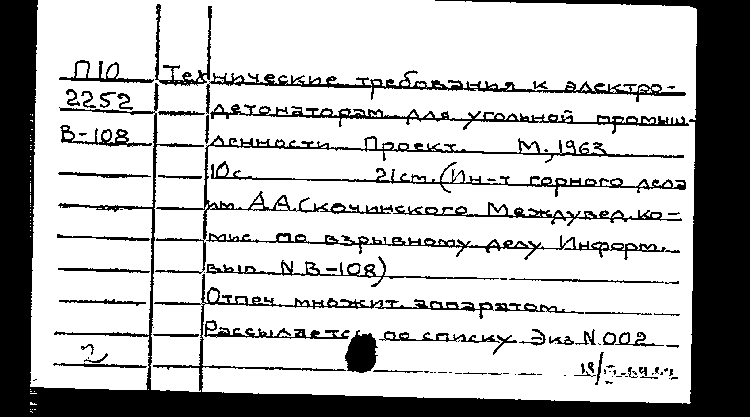 П10 Технические требования к электро-
2252 детонаторам для угольной промыш-
В-108 ленности. Проект. М., 1963
10с. 21см. (Ин-т горного дела
им. А.А.Скочинского. Междувед. ко-
мис. по взрывному делу. Информ.
вып. N В-108)
Отпеч. множит. аппаратом.
Рассылается по списку. Экз. N 002
2